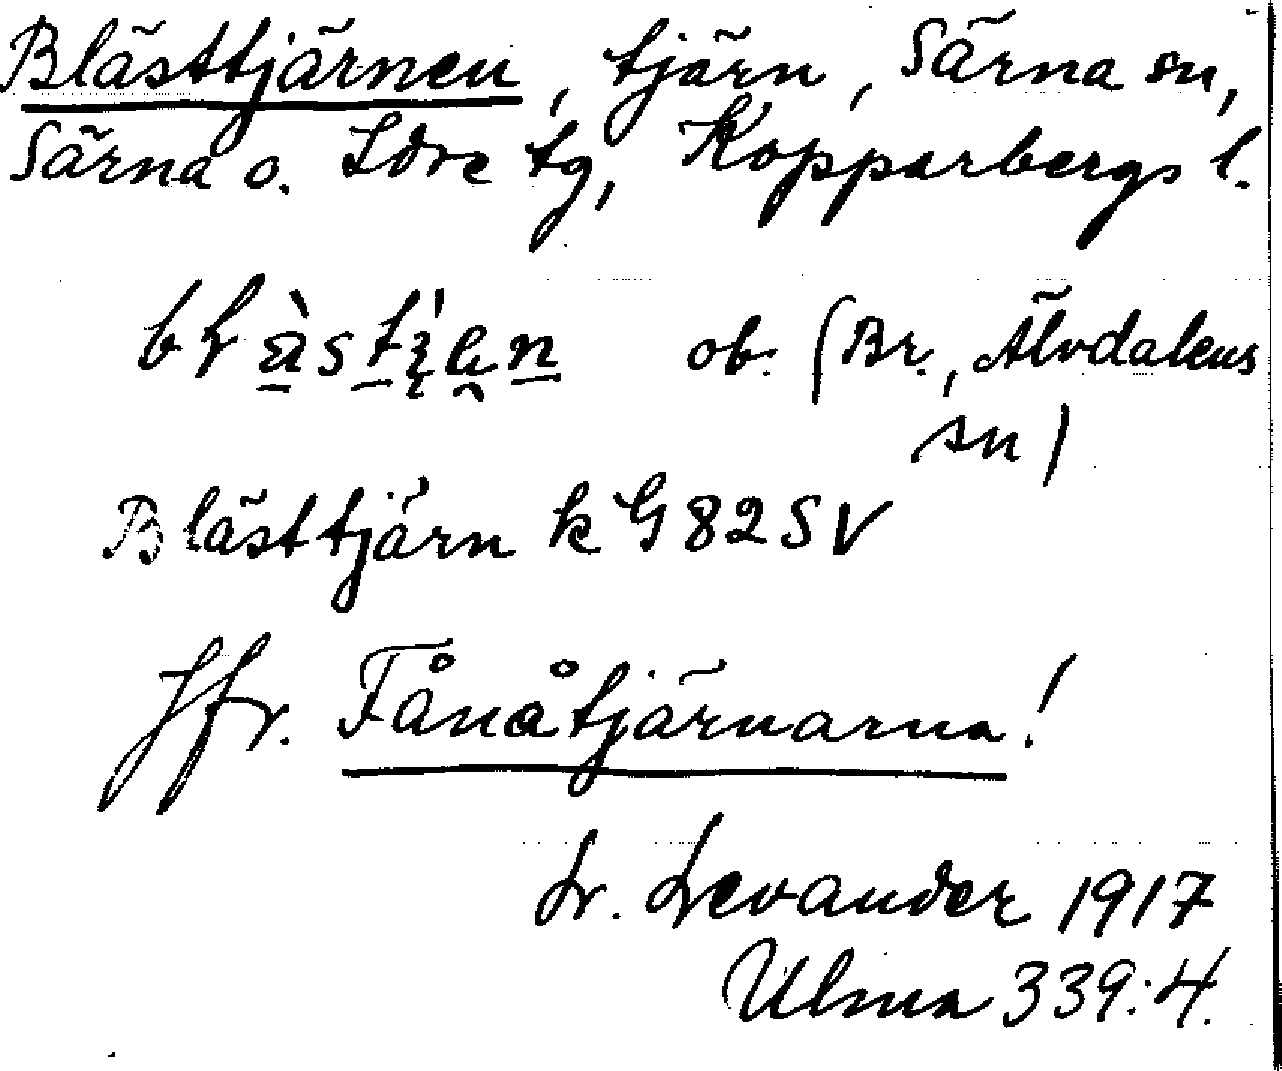 Blästtjärnen, tjärn, Särna sn,
Särna o. Idre tg, Kopparbergs l.
ob. (Br., Älvdalens
sn)
Blästtjärn k G 82 SV
Jfr. Fånåtjärnarna!
L. Levander 1917
Ulma 339:4.